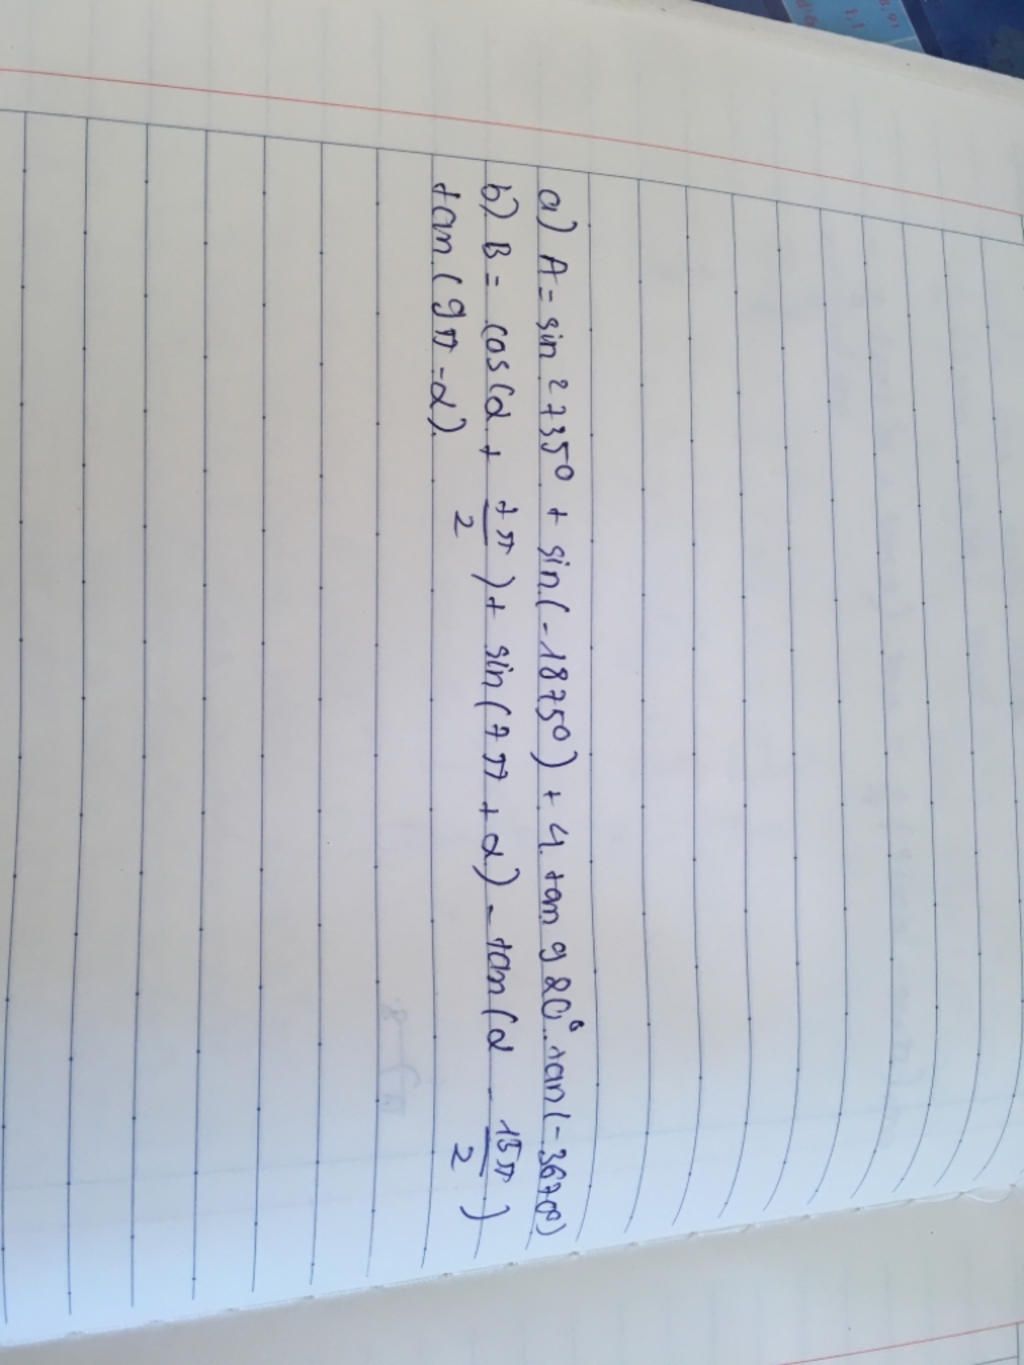 a) A = sin² 735⁰ + sin(-1875⁰) + 4. tan 920⁰. tan(-3670⁰)
b) B = cos(α + 7π/2) + sin(7π + α) - tan(α - 15π/2)
tan(9π - α).